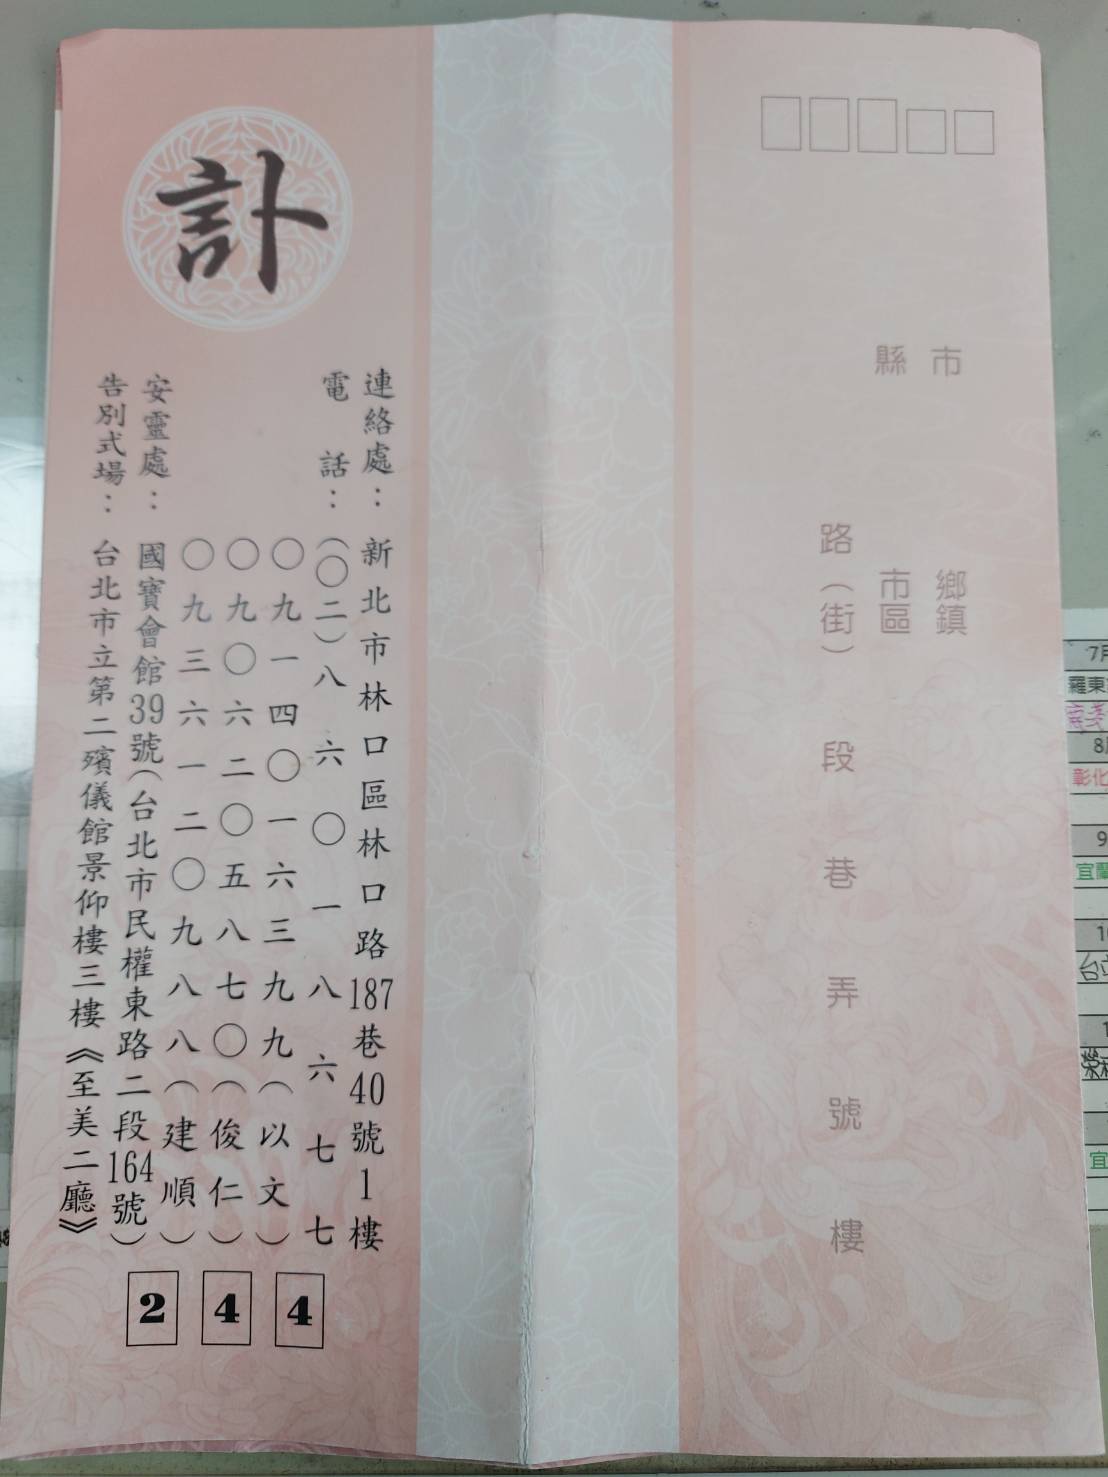 市
縣
鄉鎮
市區
路（街）　段　巷　弄　號　樓
訃
連絡處：新北市林口區林口路187巷40號1樓
電話：（〇二）八六〇一八六七七
〇九一四〇一六三九九九（以文）
〇九〇六二〇五八七〇（俊仁）
〇九三六一二〇九八八（建順）
安靈處：國寶會館39號（台北市民權東路二段164號）
告別式場：台北市立第二殯儀館景仰樓三樓《至美二廳》
244
7月
羅東
8月
彰化
9
宜蘭
1
宜